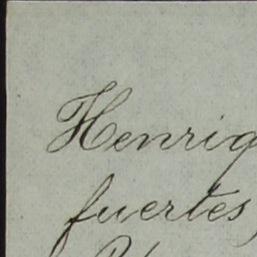 Henriq
fuertes,